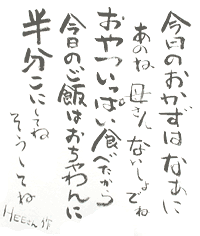 今日のおかずはなあに
あのね 母さん ないしょでね
おやついっぱい食べたから
今日のご飯はおちゃわんに
半分こにしてね
そうしてね
HEBさん作